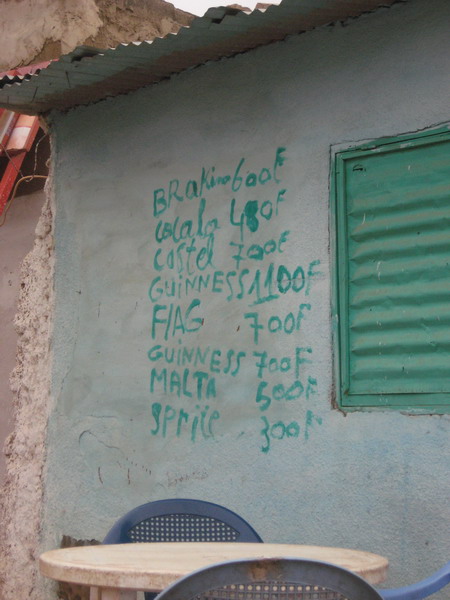 BRakina 600F
cocala 480F
castel 700F
GUINNESS 1100F
FlAG 700F
GUINNESS 700F
MALTA 500F
sprite 300F